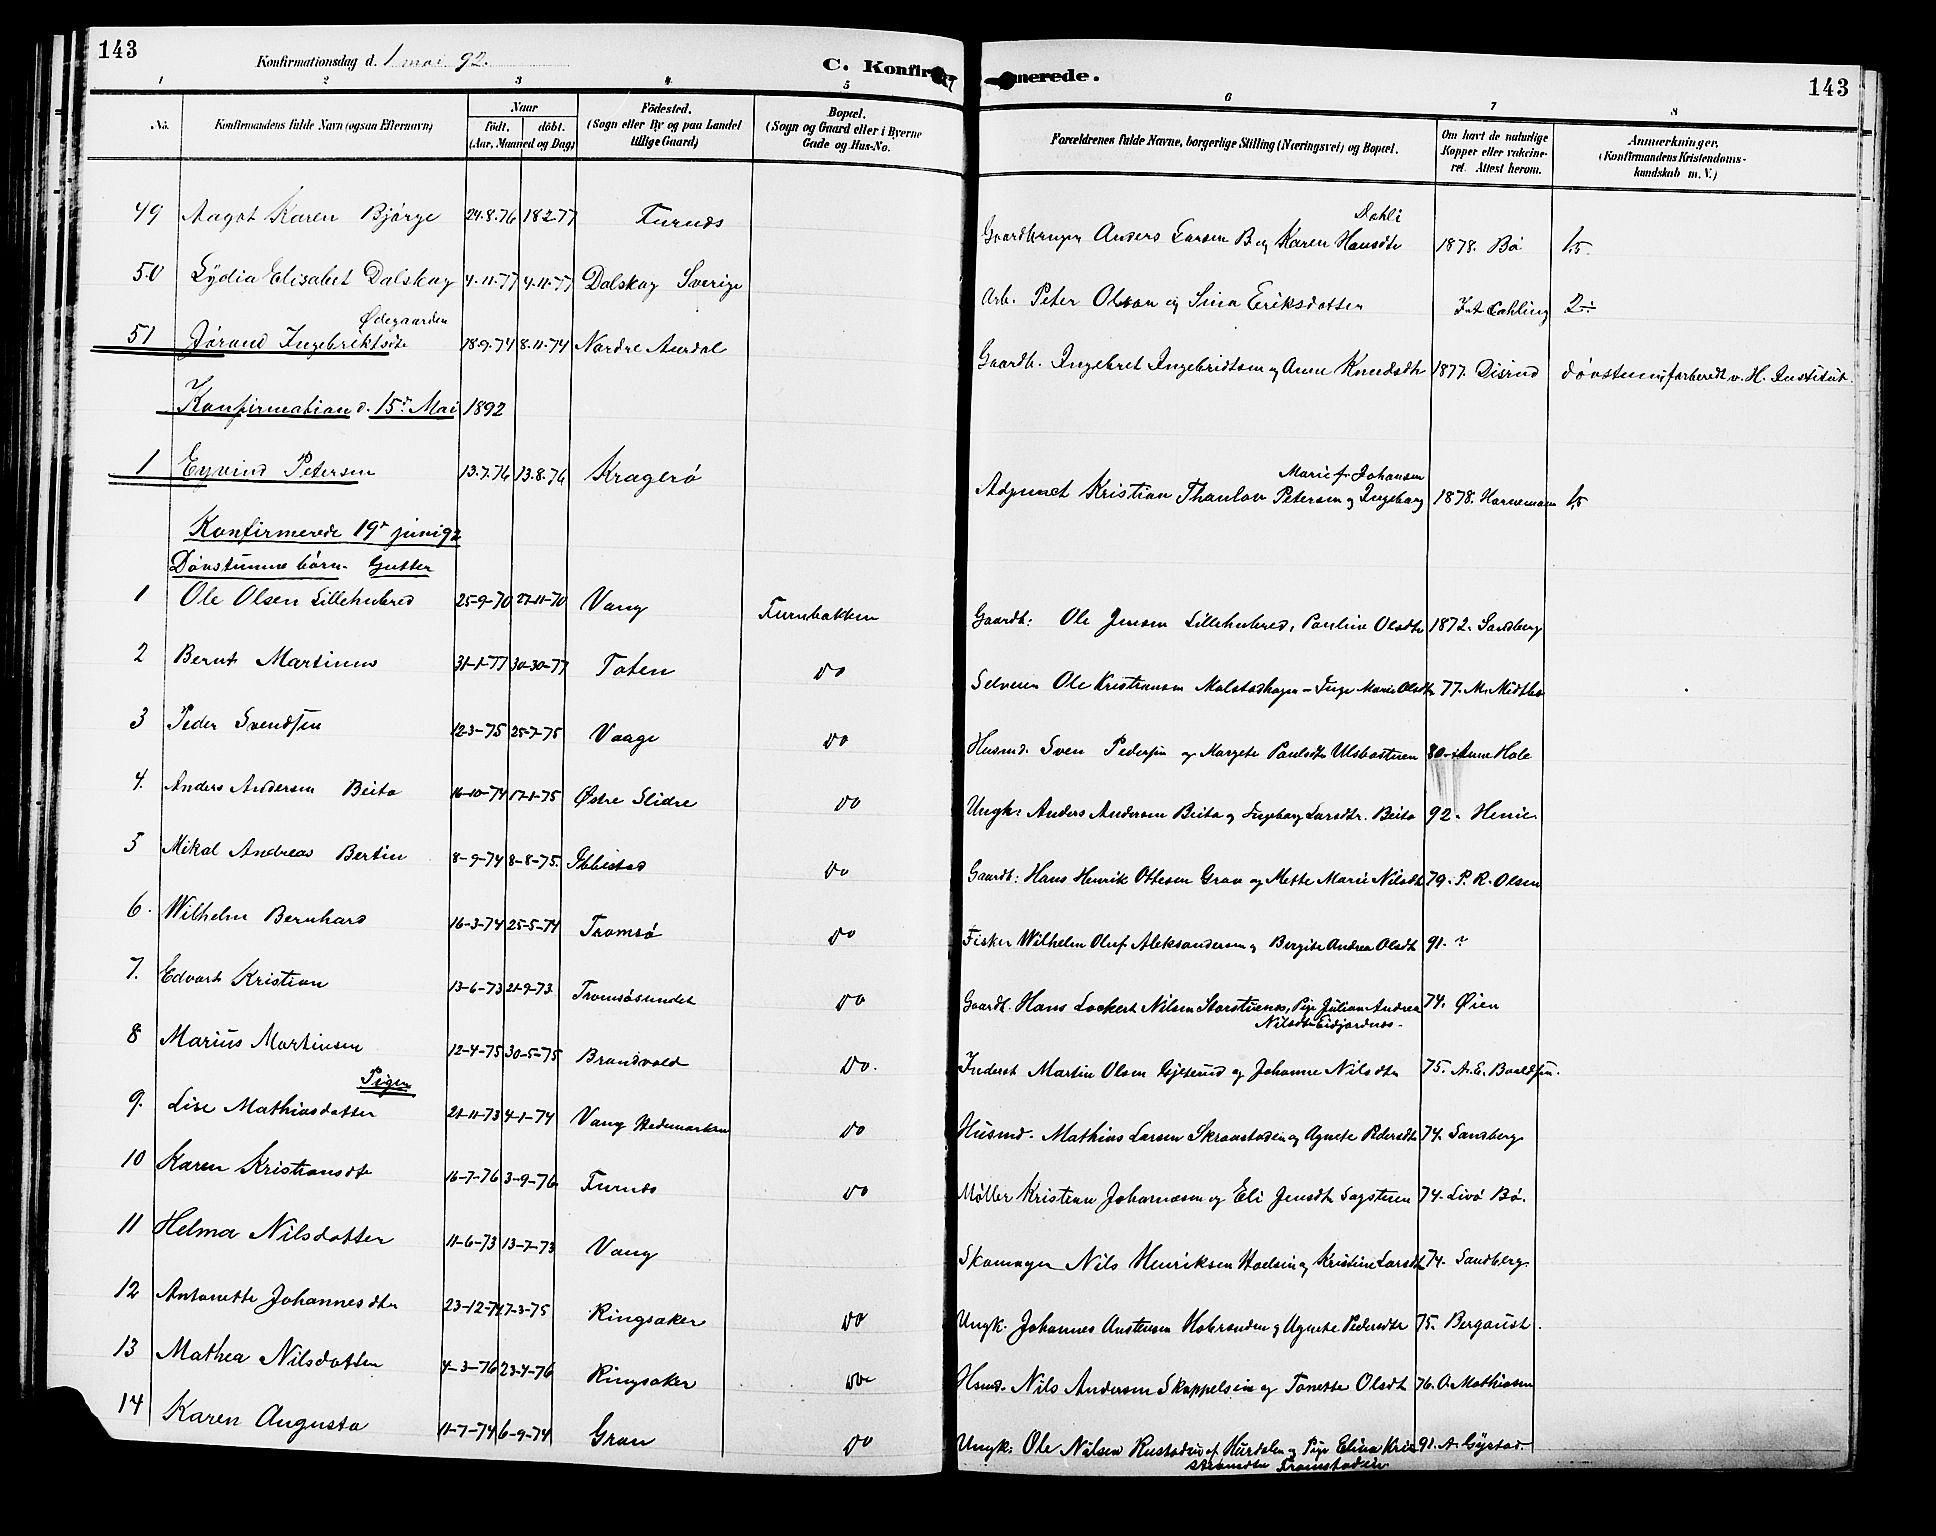 143
Konfirmationsdag d. 1 mai 92.
C. Konfir
merede.
143
1 2 3 4 5 6 7 8
No.
Konfirmandens fulde Navn (ogsaa Efternavn)
Naar
født, døbt.
(Aar, Maaned og Dag)
Fødested.
(Sogn eller By og paa Landet
tillige Gaard)
Bopæl.
(Sogn og Gaard eller i Byerne
Gade og Hus-No.
Forældrenes fulde Navne, borgerlige Stilling (Næringsvei) og Bopæl.
Om havt de naturlige
Kopper eller vakcine-
ret. Attest herom.
Anmærkninger.
(Konfirmandens Kristendoms-
kundskab m. V.)
Dahli
49 Aagot Karen Bjørge 24.8.76 18.2.77 Furnes Gaardbruger Anders Larsen B og Karen Hansdtr 1878. Bø 1,5.
50 Lydia Elisabet Dalskog 4-11-77 4-11-77 Dalskog Sverige Arb. Peter Olson og Sina Eriksdotter Colling 2-
Ødegaarden
51 Jørand Ingebriktsdtr 18.9.74 8.11.74 Nordre Aurdal Gaardb. Ingebret Ingebridtsen og Anne Knudsdtr 1877. Disrud døvstum forberedt v. H. Institut.
Konfirmation d. 15de Mai 1892
Marie f. Johansen
1 Eyvind Petersen 13.7.76 13.8.76 Kragerø Adjunct Kristian Thaulov Petersen og Ingeborg 1878. Hornemann 1,5
Konfirmerede 19de juni 92
Døvstumme børn. Gutter
1 Ole Olsen Lillehubred 25-9-70 27-11-70 Vang Furubakken Gaardb: Ole Jensen Lillehubred, Pauline Olsdtr 1872. Sandberg
2 Bernt Martinus 31-1-77 30-30-77 Toten Do Selveier Ole Kristiansen Malstadhagen - Inge Marie Olsdtr 77. M.
3 Peder Svendsen 12-3-75 25-7-75 Vaage Do Husmd. Sven Pedersen og Margete Paulsdtr 80. Anne Hole
4. Anders Andersen Beito 16-10-74 17-1-75 Østre Slidre Do Ungk: Anders Andersen Beito og Ingeborg Larsdtr. Beito 92. Henie
5 Mikal Andreas Bertin 8-9-74 8-8-75. Ibbestad Do Gaardb: Hans Henrik Ottesen Grav og Mette Marie Nilsdtr 79. P. R. Olsen
6. Wilhelm Bernhard 16-3-74 25-5-74 Tromsø Do Fisker Wilhelm Oluf Aleksandersen og Bergite Andrea Olsdtr 91. ?
7. Edvart Kristian 13-6-73 21-9-73 Tromsøsundet Do Gaardb. Hans Lockert Nilsen Storstienes, Pige Julian Andrea 74. Øien
Nilsdtr Eidjordnes.
8 Marius Martinsen 12-4-75 30-5-75 Brandvold Do. Inderst Martin Olsen Gjeterud og Johanne Nilsdtr 75. A. E.
Piger
9. Lise Mathiasdatter 21-11-73 4-1-74 Vang Hedemarken Do Husmd. Mathias Larsen Skramstaden og Agnete Pedersdtr 74. Sandberg
10 Karen Kristiansdtr 16-7-76 3-9-76 Furnes Do Møller Kristian Johannesen og Eli Jensdtr Sagstuen 74. Livø Bø.
11 Helma Nilsdatter 11-6-73 13-7-73 Vang Skomager Nils Henriksen og Kristine Larsdtr 74. Sandberg
12 Antonette Johannesdtr 23-12-74 7-3-75 Ringsaker Do Ungk. Johannes Austensen og Agnete Pedersdtr 75. Bergaust.
13 Mathea Nilsdatter 4-3-76 23-4-76 Ringsaker Do Hsmd. Nils Andersen Skappelsein og Tonette Olsdtr 76. O. Mathiesen
14 Karen Augusta 11-7-74 6-9-74 Gran Do Ungk: Ole Nilsen Rustaden af Hurdalen og Pige Elina Kris 91. A. Gystad
tiansdtr Framstadeie